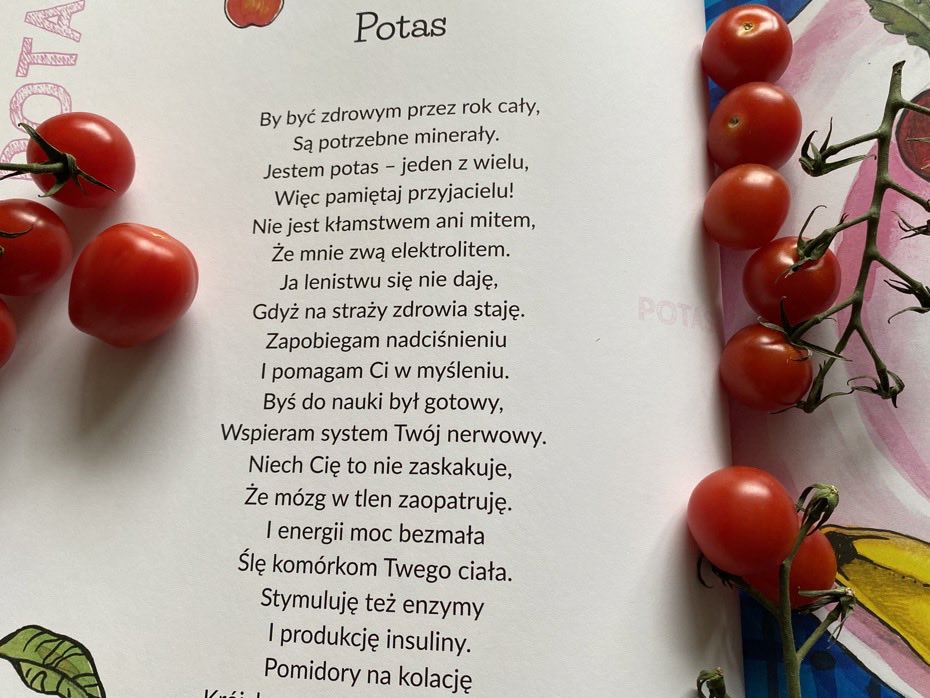 Potas
By być zdrowym przez rok cały,
Są potrzebne minerały.
Jestem potas – jeden z wielu,
Więc pamiętaj przyjacielu!
Nie jest kłamstwem ani mitem,
Że mnie zwą elektrolitem.
Ja lenistwu się nie daję,
Gdyż na straży zdrowia staję.
Zapobiegam nadciśnieniu
I pomagam Ci w myśleniu.
Byś do nauki był gotowy,
Wspieram system Twój nerwowy.
Niech Cię to nie zaskakuje,
Że mózg w tlen zaopatruję.
I energii moc bezmała
Ślę komórkom Twego ciała.
Stymuluję też enzymy
I produkcję insuliny.
Pomidory na kolację
POTA
POTAS